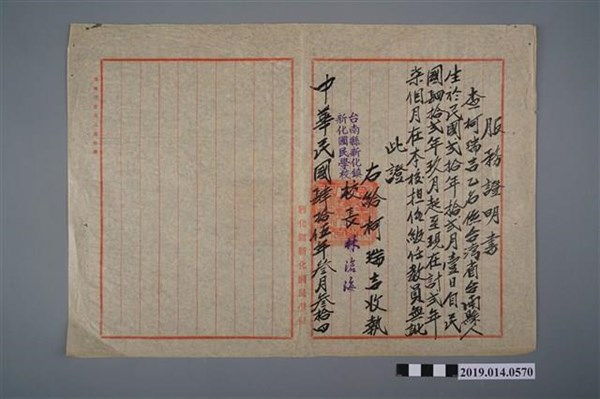 服務證明書
查柯瑞吉乙名係台灣省台南縣人
生於民國貳拾年拾貳月壹日自民
國肆拾貳年玖月起至現在計貳年
柒個月在本校担任級任教員無訛
此證
右給柯瑞吉收執
台南縣新化鎮
新化國民學校
校長林滄海
中華民國肆拾伍年叁月叁拾日
2019.014.0570